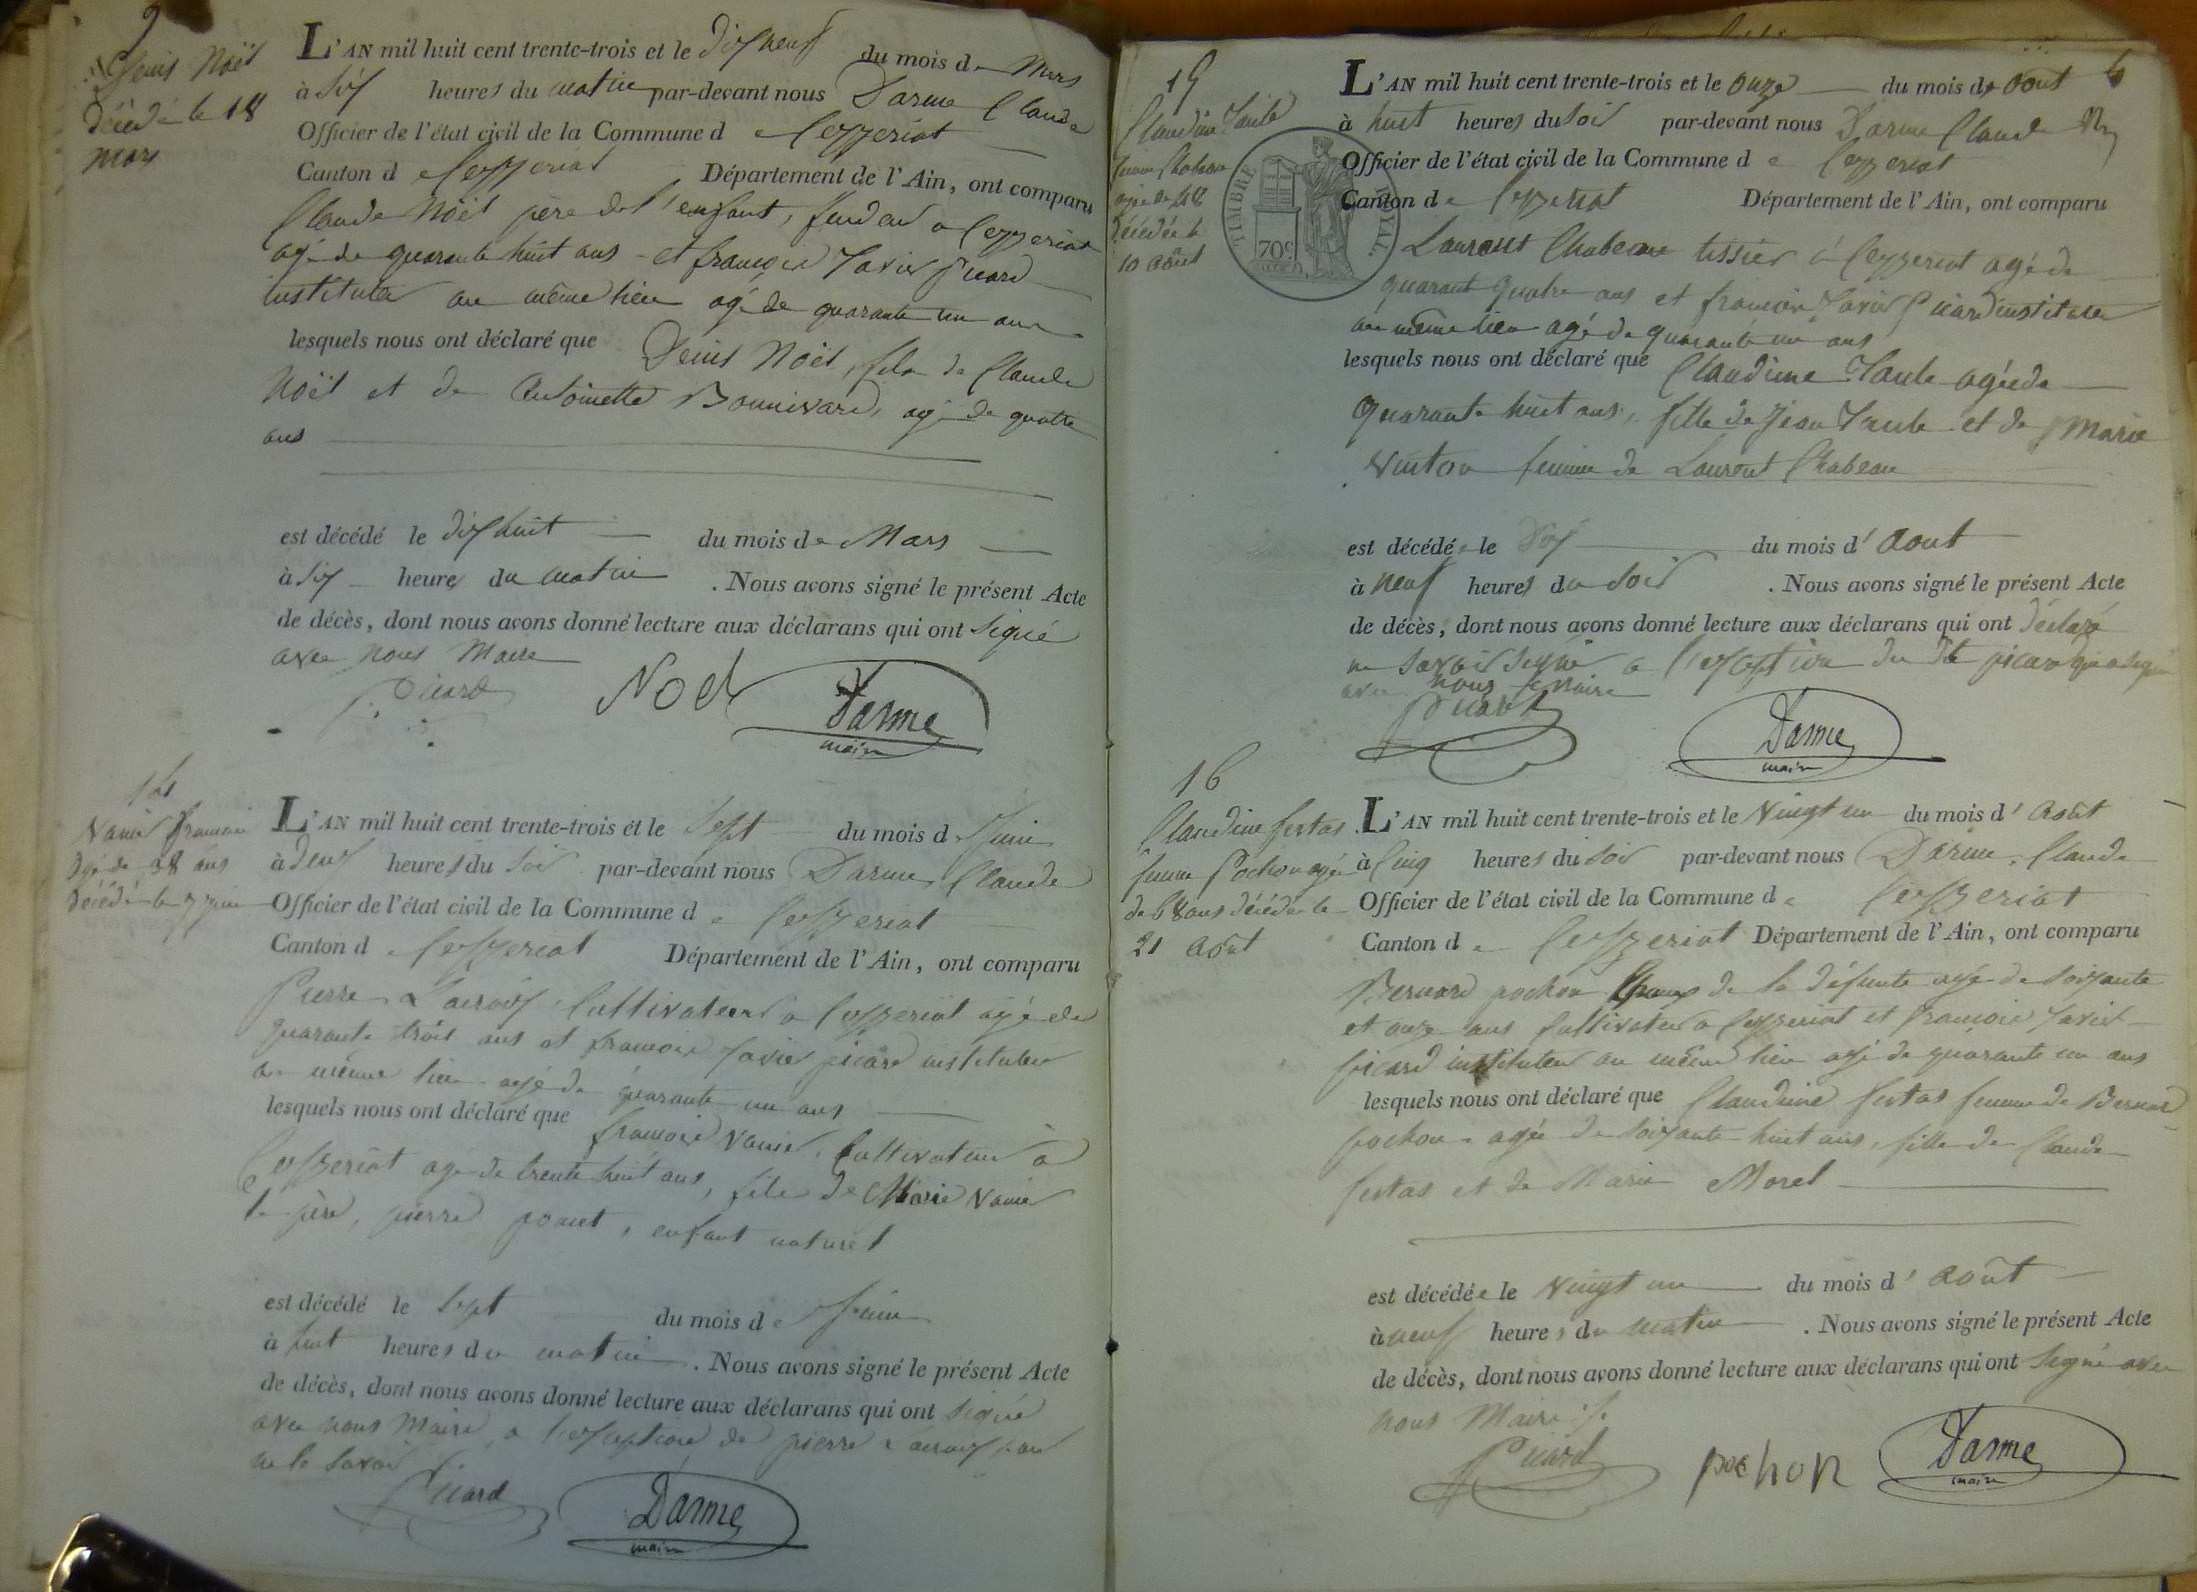 Denis Noël
Décédé le 18
Mars
L'AN mil huit cent trente-trois et le dix neuf du mois de Mars
à six heures du matin par-devant nous Darme Claude
Officier de l'état civil de la Commune de Ceyzeriat
Canton de Ceyzeriat Département de l'Ain, ont comparu
Claude Noël père de l'enfant, à Ceyzeriat
agé de quarante huit ans et françois Xavier picard
instituteur au même lieu agé de quarante un ans
lesquels nous ont déclaré que Denis Noël, fils de Claude
Noël et de Antoinette Bonnivard, agé de quatre
ans
est décédé le dix huit du mois de Mars
à six heures du matin . Nous avons signé le présent Acte
de décès, dont nous avons donné lecture aux déclarans qui ont signé
avec nous Maire
Picard Noel Darme
maire
14
Vanier françois
agé de 38 ans
Décédé le 7 juin
L'AN mil huit cent trente-trois et le sept du mois de Juin
à deux heures du soir par-devant nous Darme Claude
Officier de l'état civil de la Commune de Ceyzeriat
Canton de Ceyzeriat Département de l'Ain, ont comparu
Pierre Cultivateur à Ceyzeriat agé de
quarante trois ans et françois Xavier picard instituteur
au même lieu agé de quarante un ans
lesquels nous ont déclaré que françois Vanier, Cultivateur à
Ceyzeriat agé de trente huit ans, fils de Marie Vanier
le père, pierre ponet, enfant naturel
est décédé le sept du mois de Juin
à huit heures du matin . Nous avons signé le présent Acte
de décès, dont nous avons donné lecture aux déclarans qui ont signé
avec nous Maire à l'exception de pierre pour
ne le savoir
Picard Darme
maire
15
Claudine Taule
femme Chabeau
agée de 48
Décédée le
10 août
TIMBRE ROYAL
70c
L'AN mil huit cent trente-trois et le onze du mois de Aout
à huit heures du soir par-devant nous Darme Claude
Officier de l'état civil de la Commune de Ceyzeriat
Canton de Ceyzeriat Département de l'Ain, ont comparu
Laurent Chabeau tissier à Ceyzeriat agé de
quarante quatre ans et francois Xavier Picard instituteur
au même lieu agé de quarante un ans
lesquels nous ont déclaré que Claudine Taule agée de
quarante huit ans, fille de Jean Taule et de Marie
femme de Laurent Chabeau
est décédée le dix du mois d'Aout
à neuf heures du soir . Nous avons signé le présent Acte
de décès, dont nous avons donné lecture aux déclarans qui ont déclaré
ne savoir signer à l'exception du dt picard qui a signé
avec nous Maire
Picard Darme
maire
16
Claudine fertas
femme Pochon agée
de 68 ans décédée le
21 août
L'AN mil huit cent trente-trois et le vingt un du mois d'Août
à Cinq heures du soir par-devant nous Darme Claude
Officier de l'état civil de la Commune de Ceyzeriat
Canton de Ceyzeriat Département de l'Ain, ont comparu
Bernard pochon Epoux de la défunte agé de soixante
et onze ans Cultivateur à Ceyzeriat et françois Xavier
picard instituteur au même lieu agé de quarante un ans
lesquels nous ont déclaré que Claudine fertas femme de Bernard
pochon agée de soixante huit ans, fille de Claude
fertas et de Marie Morel
est décédée le vingt un du mois d'Août
à neuf heures du matin . Nous avons signé le présent Acte
de décès, dont nous avons donné lecture aux déclarans qui ont signé avec
nous Maire
Picard pochon Darme
maire